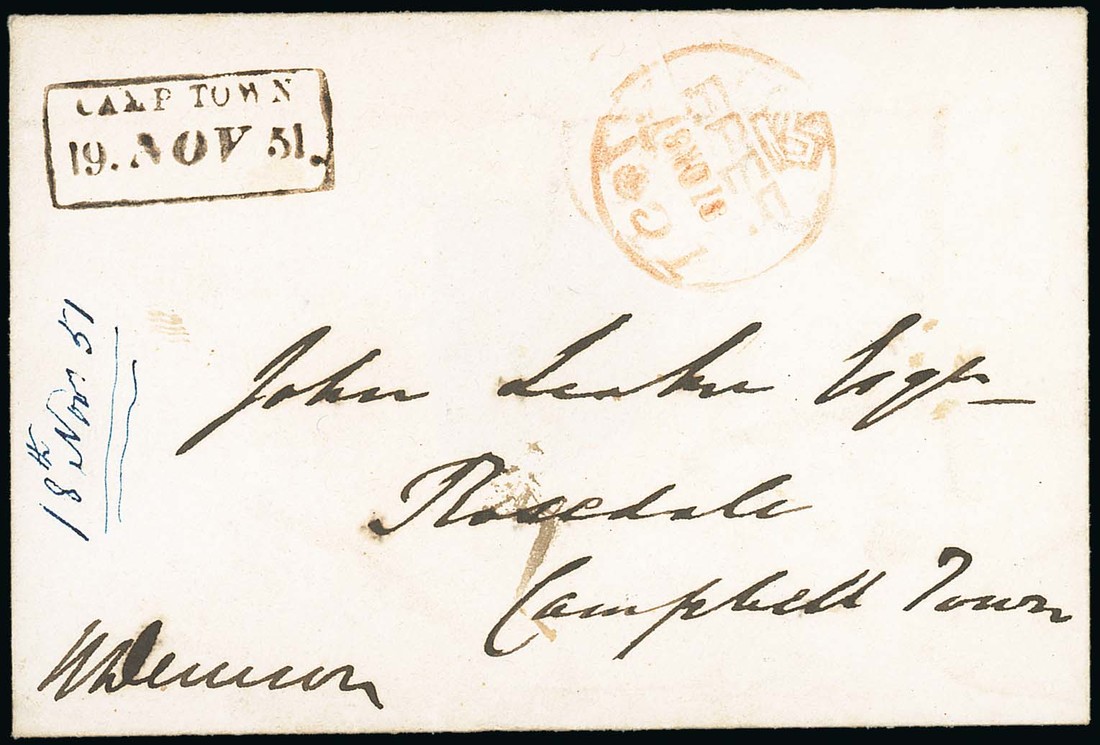 CAMP TOWN
19. NOV 51.
18th Nov. 51
John Leake Esqr
Rosedale
Campbell Town
W Denison